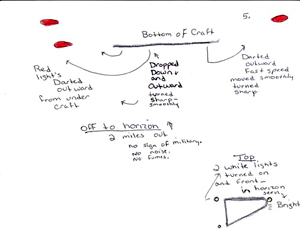 5.
Bottom of Craft
Red
light's
Darted
outward
from under
Craft
Dropped
Down
and
Outward
turned
sharp-
smoothly
Darted
outward
Fast speed
moved smoothly
turned
sharp
off to horizon
2 miles out
no sign of military.
no noise.
no fumes.
Top
2 white lights
turned on
and front-
in horizon
seen
Bright